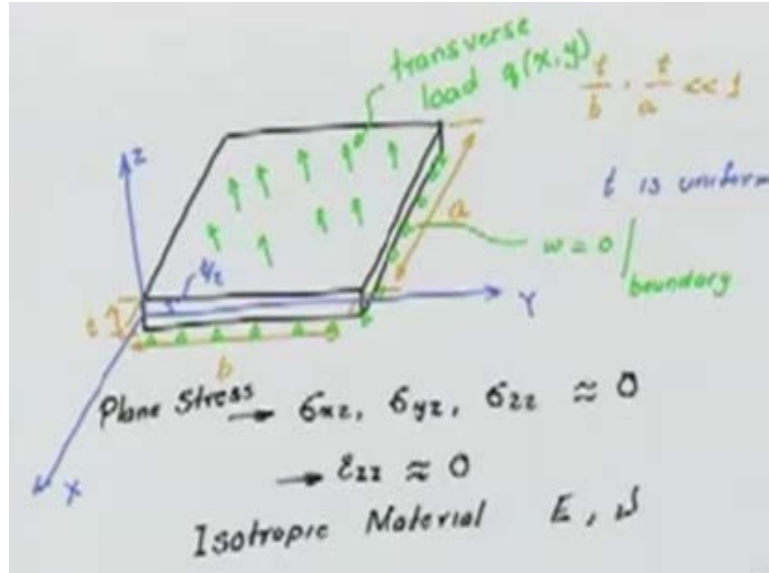 transverse
load q(x,y)
t/b , t/a << 1
z
t is uniform
a
w = 0 | boundary
t/2
Y
t
b
Plane Stress → σxz, σyz, σzz ≈ 0
→ εzz ≈ 0
X
Isotropic Material E, ν